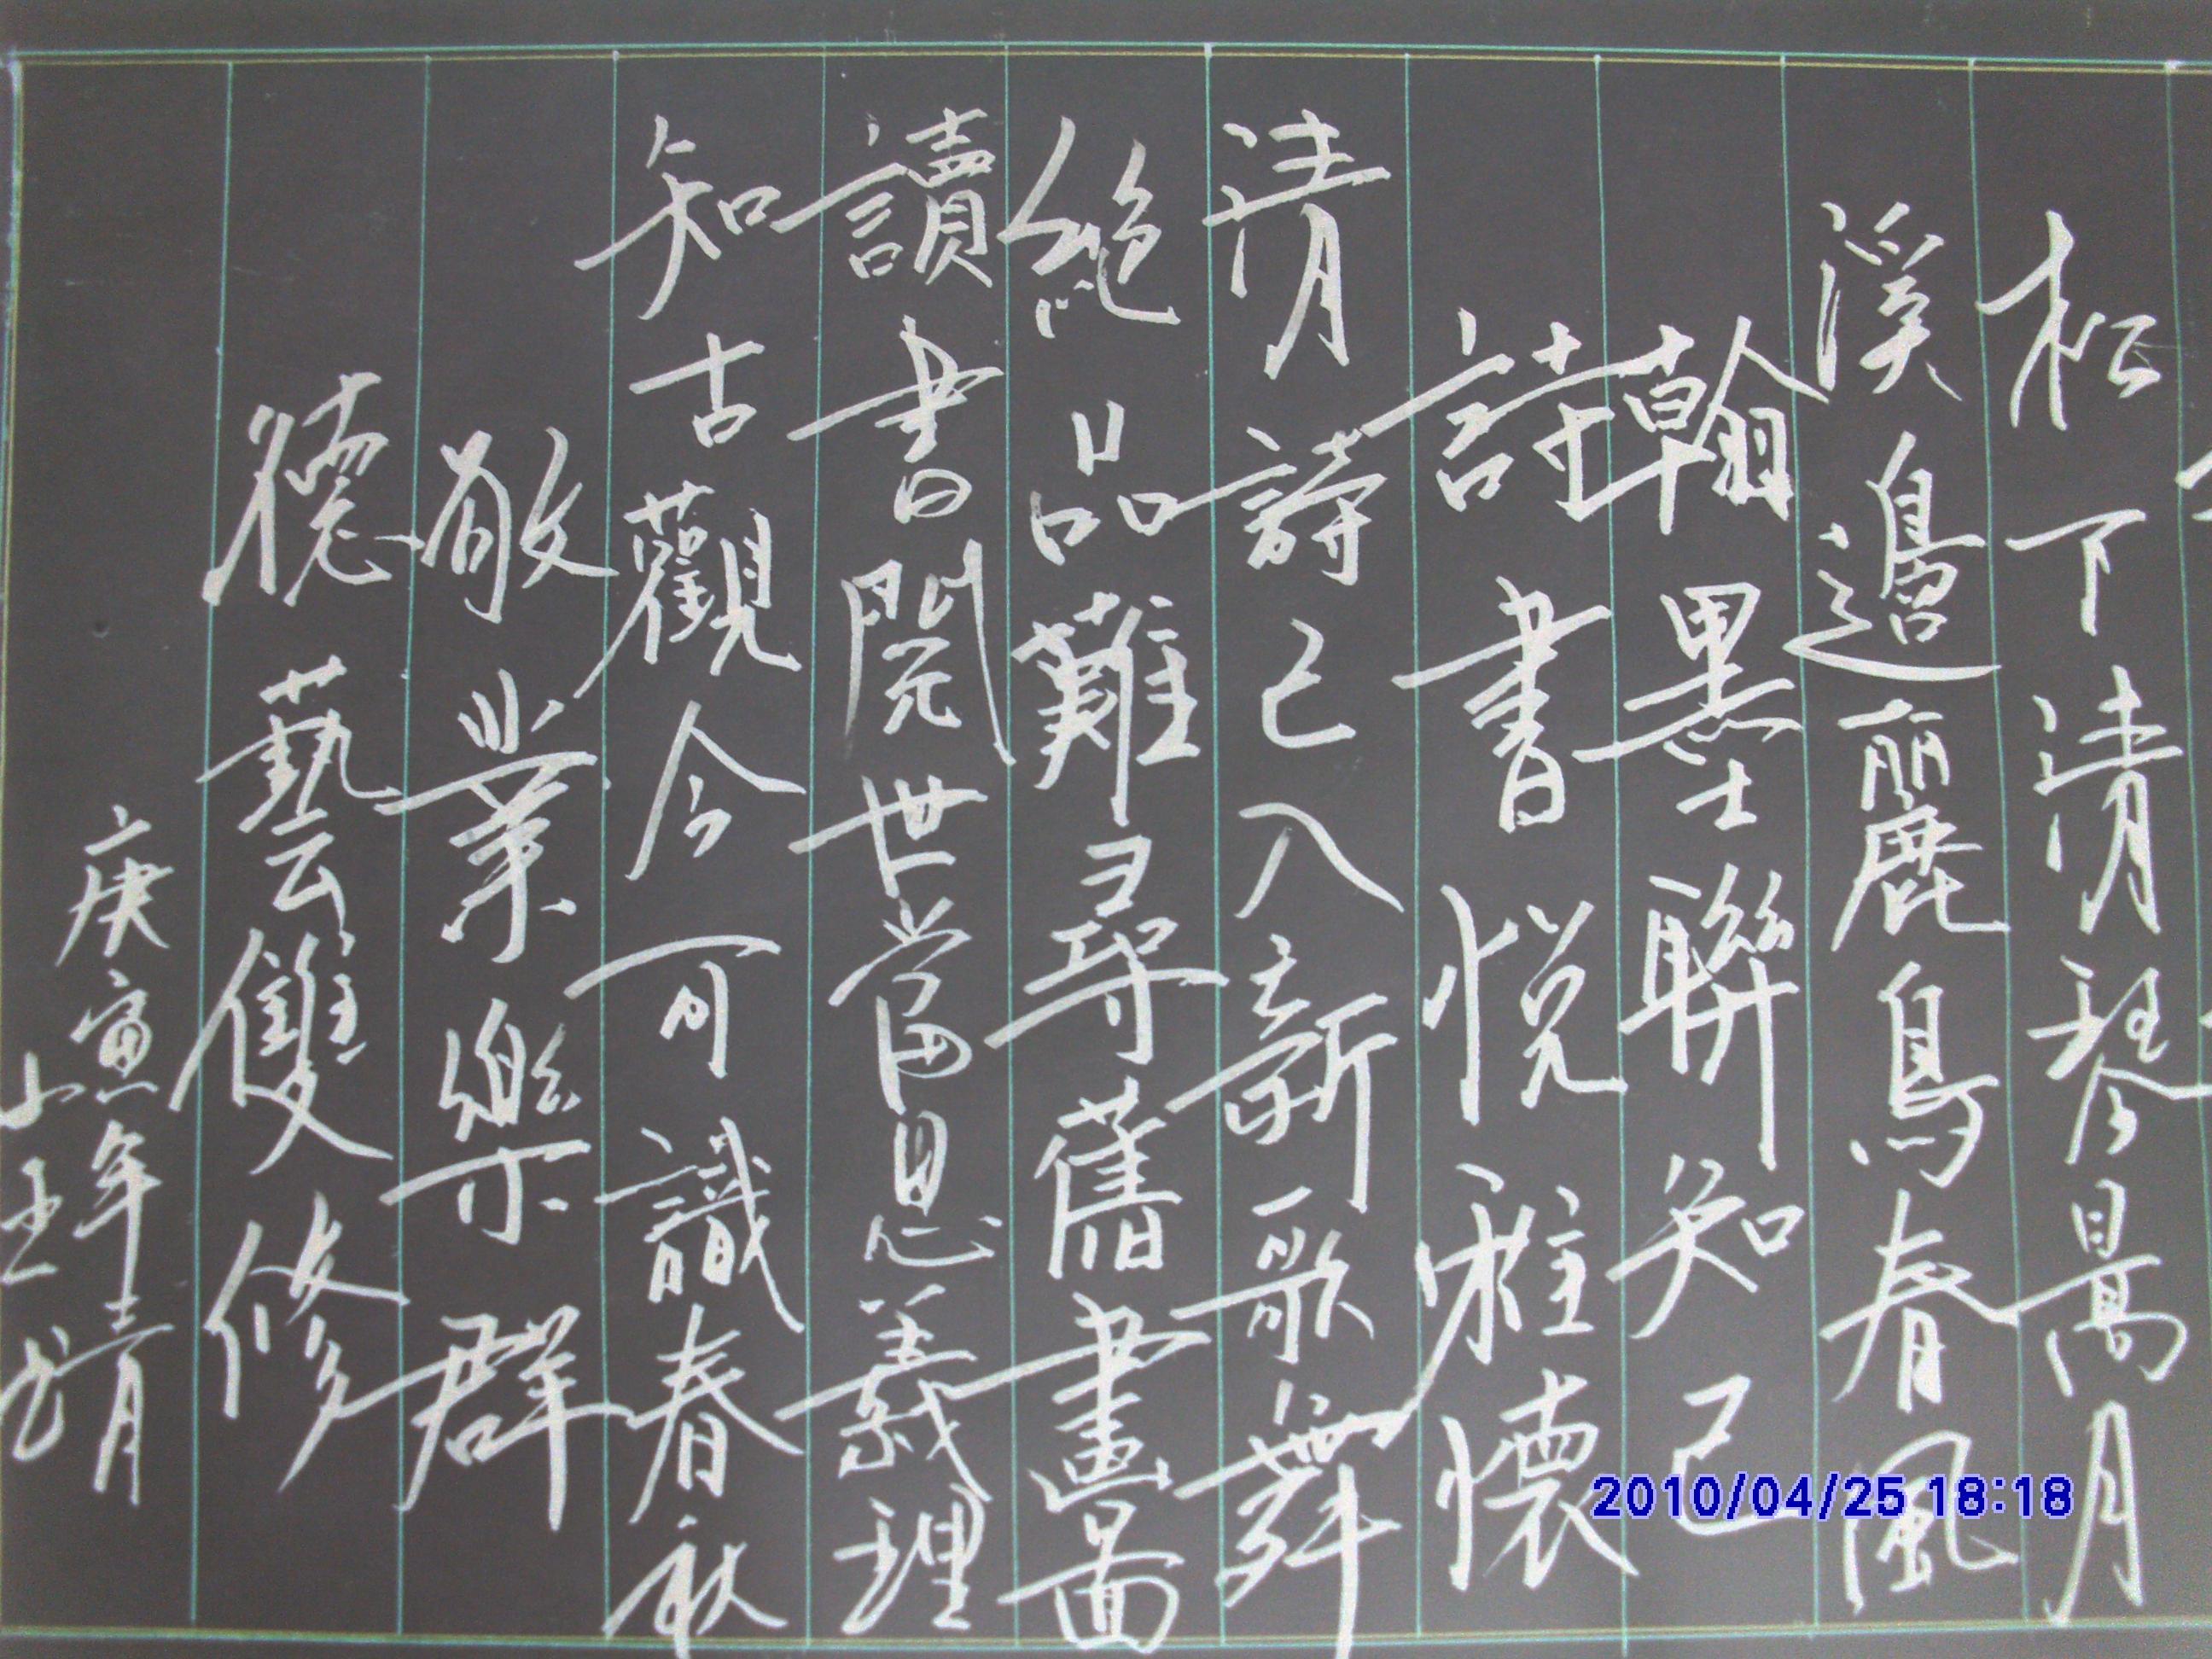 松下清琴暠月
溪邊麗鳥春風
翰墨聯知己
詩書悦雅懷
清詩已入新歌舞
絶品難尋舊畫圖
讀書閱世當思義理
知古觀今可識春秋
敬業樂群
德藝雙修
庚寅年
2010/04/25 18:18